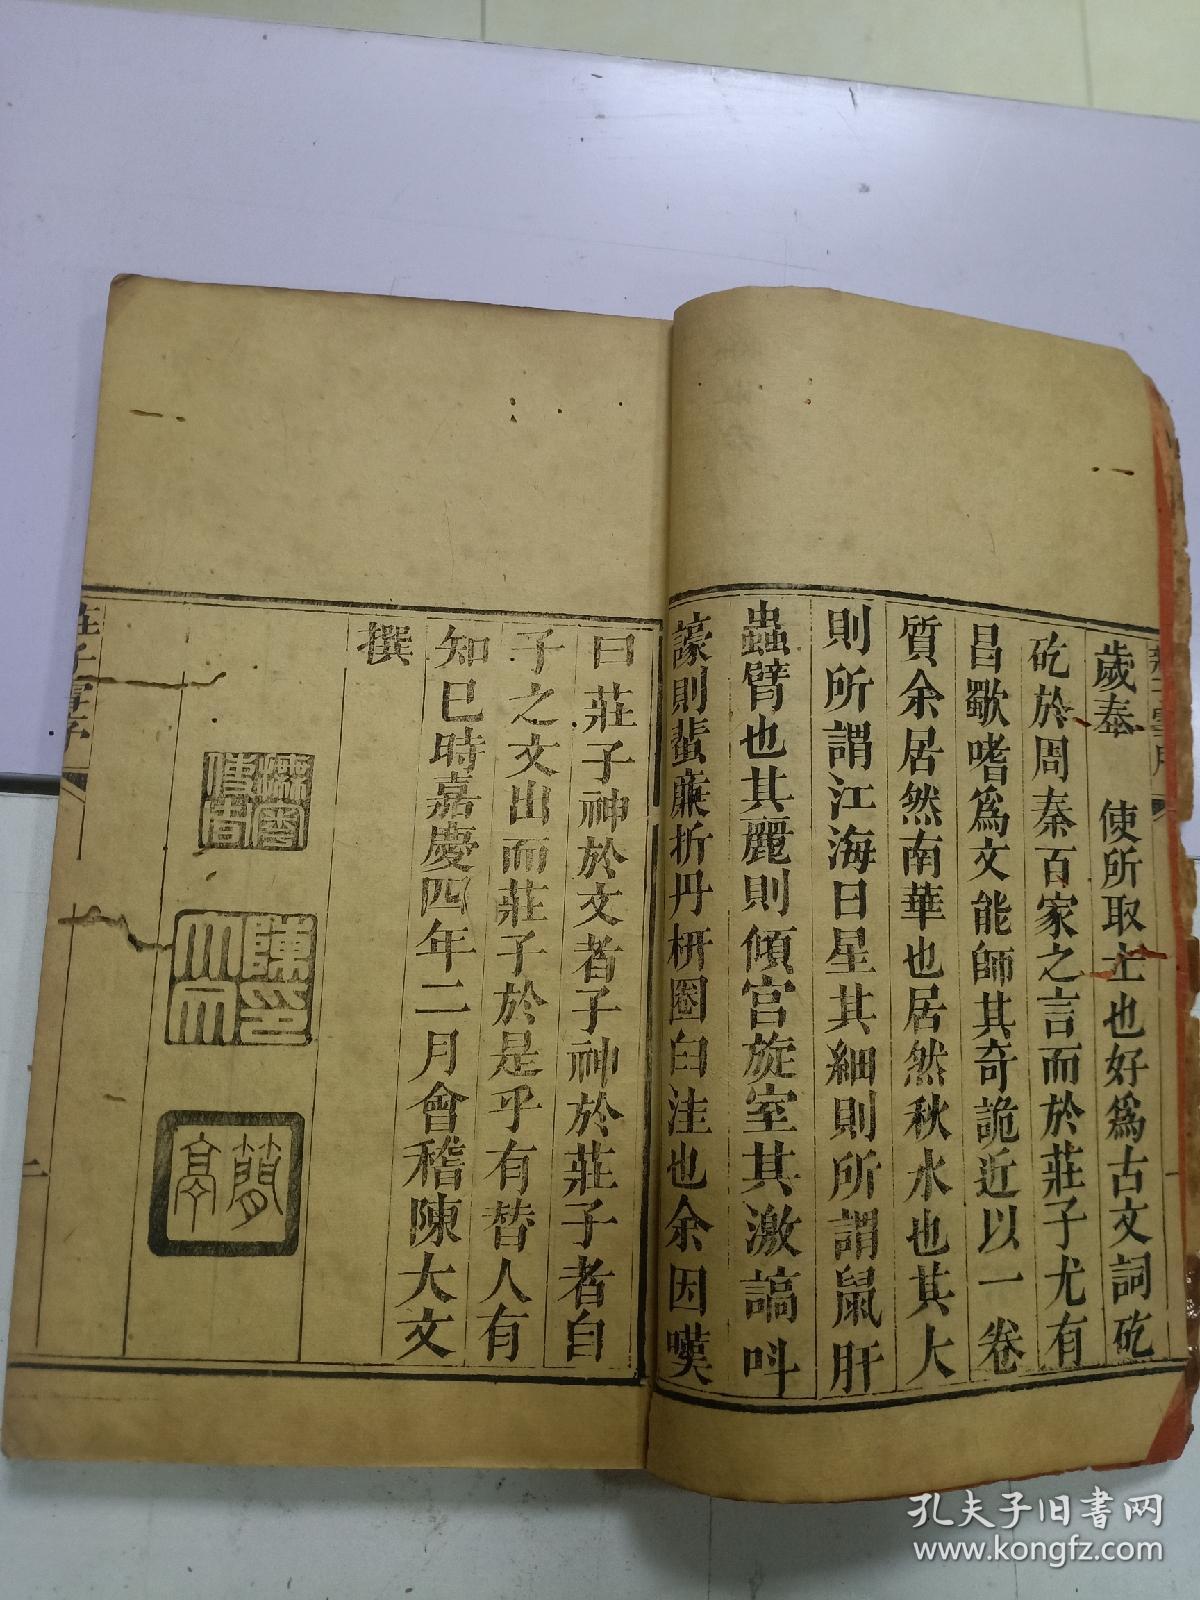 歲奉　使所取士也好爲古文詞矻
矻於周秦百家之言而於莊子尤有
昌歜嗜爲文能師其奇詭近以一卷
質余居然南華也居然秋水也其大
則所謂江海日星其細則所謂鼠肝
蟲臂也其麗則傾宮旋室其激謞叫
譹則蜚蘪折丹枅圈臼洼也余因嘆
曰莊子神於文者子神於莊子者自
子之文出而莊子於是乎有替人有
知已時嘉慶四年二月會稽陳大文
撰
陳印
大文
簡亭
莊子雪序
二
孔夫子旧书网
www.kongfz.com